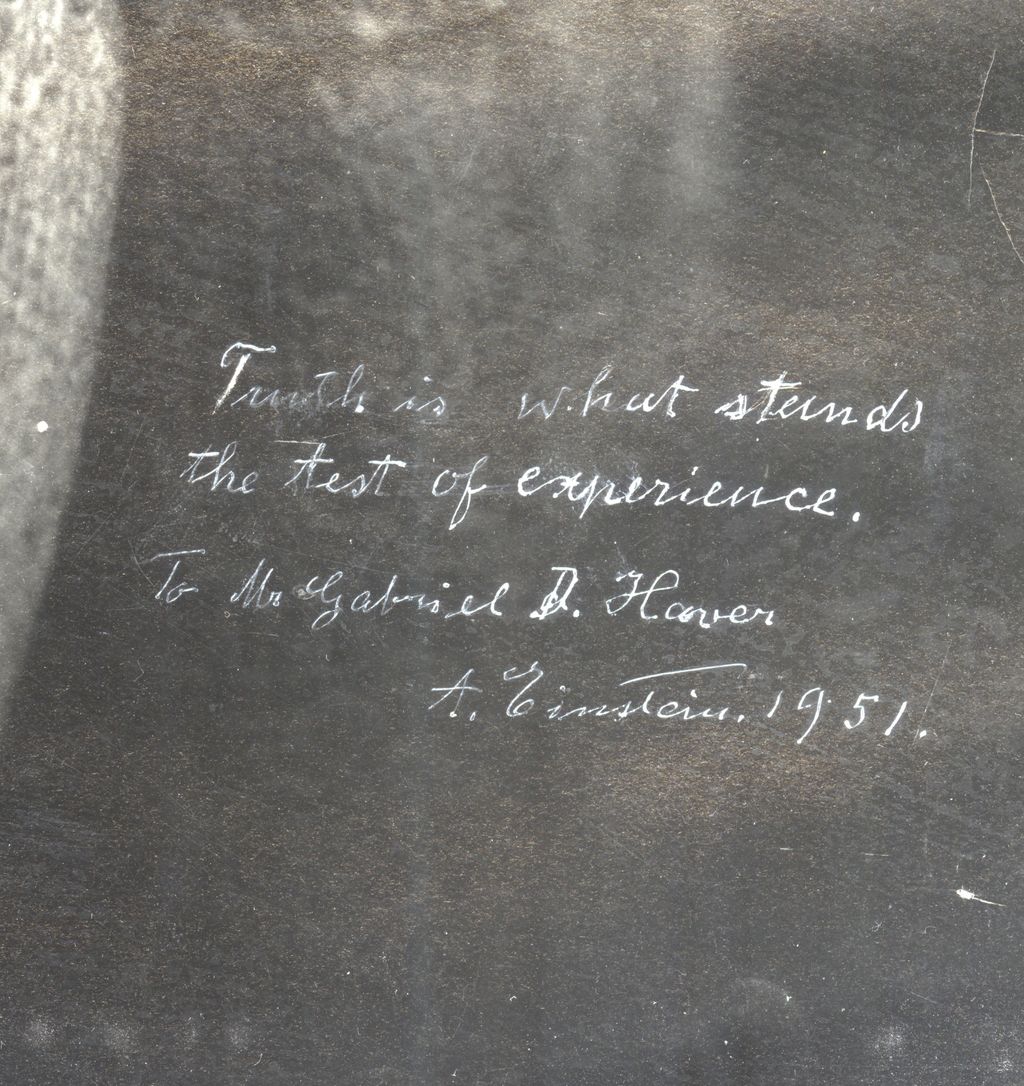 Truth is what stands
the test of experience.
To Mr Gabriel D. Haver
A. Einstein. 1951.